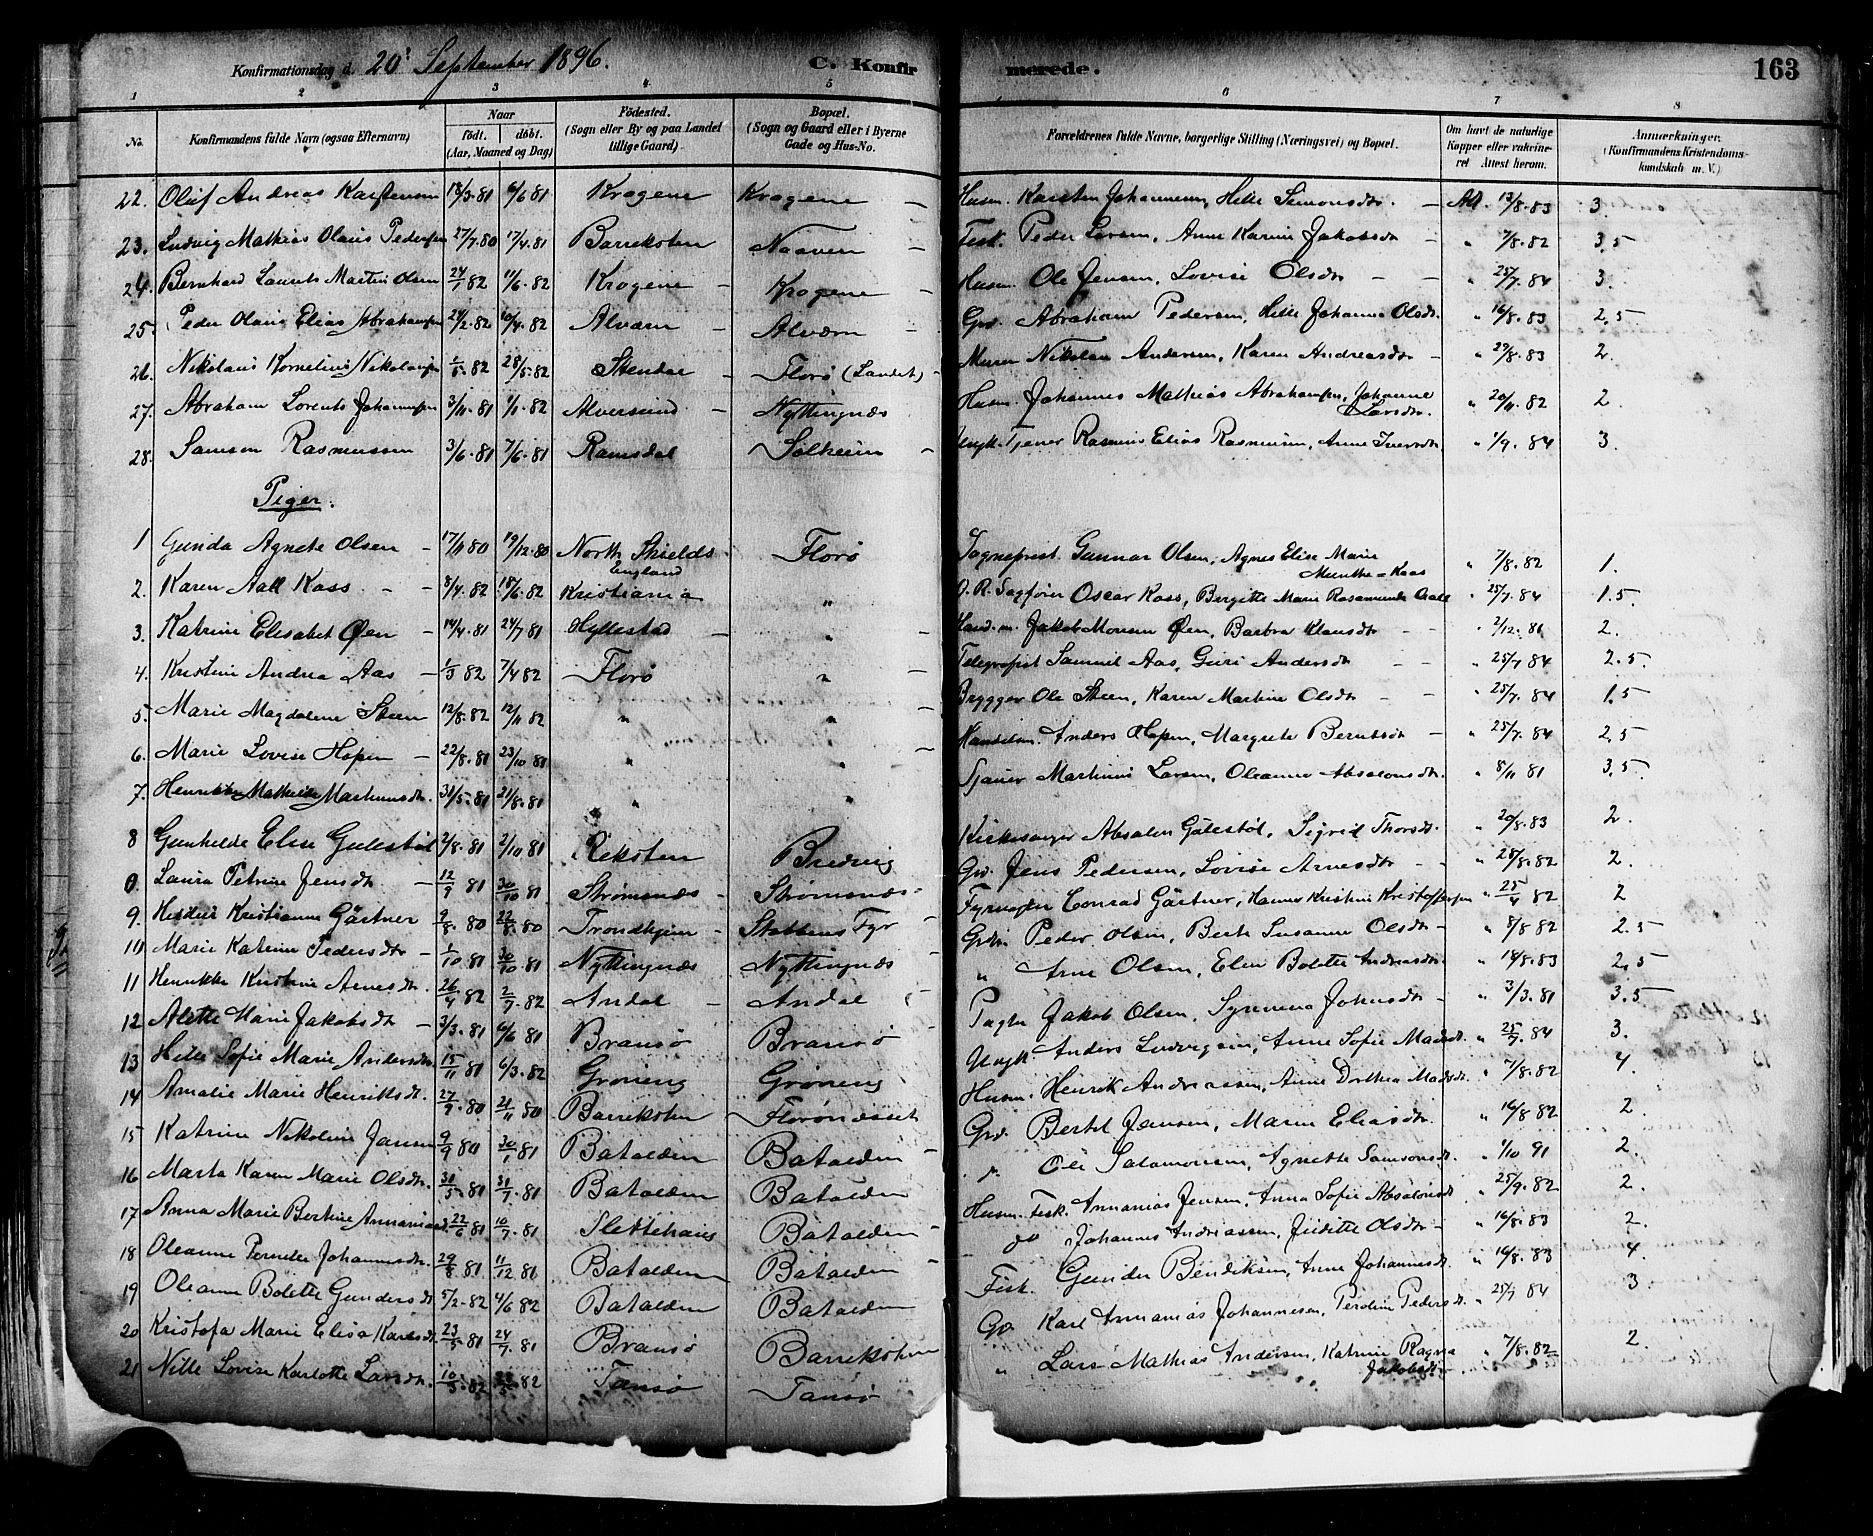 Konfirmationsdag d. 20' September 1896. C. Konfirmerede. 163
1 2 3 4 5 6 7 8
No. Konfirmandens fulde Navn (ogsaa Efternavn) Naar født. døbt. (Aar, Maaned og Dag) Fødested. (Sogn eller By og paa Landet tillige Gaard). Bopæl. (Sogn og Gaard eller i Byerne Gade og Hus-No. Forældrenes fulde Navne, borgerlige Stilling (Næringsvei) og Bopæl. Om havt de naturlige Kopper eller vakcineret. Attest herom. Anmærkninger. (Konfirmandens Kristendomskundskab m. V.)
22. Oluf Andreas Karstensen 18/3.81 6/6 81 Krogene Krogene Husm. Karsten Johannesen, Helle Simonsdtr Att. 13/8.83 3.
23. Ludvig Mathias Olaus Pedersen 27/7.80 17/4.81 Barrekoten Naaven Fisk. Peder Larsen, Anne Karine Jakobsdtr " 7/8.82 3,5
24. Bernhard Laurits Martin Olsen 24/1 82 11/6.82 Krogene Krogene Husm. Ole Jensen, Lovise Olsdtr " 25/7.84 3.
25. Peder Olaus Elias Abrahamsen 24/2.82 10/4.82 Alværn Alværn Grd. Abraham Pedersen, Helle Johanna Olsdtr. " 16/8.83 2,5
26. Nikolaus Kornelius Nikolaisen 28/5.82 Stendal Florø (Landet) Murer Nikolai Andersen, Karen Andreasdtr " 29/8.83 2.
27. Abraham Lorents Johannesen 3/11.81 1/1.82 Alversund Nyttingnæs Husm. Johannes Mathias Abrahamsen, Johanne Larsdtr. " 20/11.82 2.
28. Samson Rasmussen 3/6.81 7/6.81 Ramsdal Solheim Ugift Tjener Rasmus Elias Rasmussen, Anne Iversdtr " 1/9.84 3.
Piger.
1 Gunda Agnete Olsen 17/11 80 19/12.80 North Shields England Florø Sogneprest. Gunnar Olsen, Agnes Elise Marie Munthe-Kaas " 7/8.82 1.
2. Karen Aall Kass 8/4.82 18/6.82 Kristiania " O. R. Sagfører Oscar Kass, Bergitte Marie Rosamunda Aall " 25/7.84 1.5.
3. Katrine Elisabet Øen 14/4.81 24/7 81 Hyllestad " Hand.m. Jakob Monsen Øen, Barbra Klausdtr " 2/12.81 2.
4. Kristine Andrea Aas 1/3 82 7/4 82 Florø " Telegrafist Samuel Aas, Guri Andersdtr " 25/7 84 2.5.
5. Marie Magdalene Steen 12/8.82 12/11 82 " " Brygger Ole Steen, Karen Martine Olsdtr " 25/7.84 1,5
6. Marie Lovise Hopen 22/8.81 23/10 81 " " Handelsm. Anders Hopen, Margrete Berntsdtr " 25/7.84 2,5
7. Henrikke Mathilde Martinusdtr. 31/5.81 21/8.81 " " Sjauer Martinus Larsen, Oleanne Absalonsdtr. " 8/11 81 3.5.
8 Gunhilde Elise Gulestøl 2/8.81 2/10 81 Reksten Bredvig Kirkesanger Absalon Gulestøl, Sigrid Thorsdtr. " 20/8.83 2.
0. Laura Petrine Jensdtr. 12/9 81 30/10 81 Strømsnæs Strømsnæs Grd. Jens Pedersen, Lovise Arnesdtr " 28/8.82 2.
9. Kristianne Gärtner 9/8.80 22/8.80 Trondhjem Stabbens Fyr Fyrvogter Conrad Gärtner, Hanna Kristine Kristoffersen " 25/4 82 2
10 Marie Katrine Pedersdtr 1/10 81 30/10 81 Nyttingnæs Nyttingnæs Grdm. Peder Olsen, Berte Susanne Olsdtr " 8/8 82 2.5
11 Henrikke Kristine Arnesdtr. 26/4 82 2/7.82 Andal Andal " Arne Olsen, Elen Bolette Andreasdtr. " 18/8.83 2,5
12 Alette Marie Jakobsdtr 3/3.81 6/6 81 Bransø Bransø Pagter Jakob Olsen, Syrenna Johnsdtr " 3/3.81 3.5
13 Helle Sofie Marie Andersdtr 15/11 81 6/3.82 Grøneng Grøneng Ungk. Anders Ludvigsen, Anne Sofie Madsdtr. " 25/7.84 3.
14 Amalie Marie Henriksdtr. 27/9.80 21/11 80 Barrekoten Florønesset Husm. Henrik Andreassen, Anne Dorthea Madsdtr. " 7/8.82 4.
15 Katrine Nikoline Jansen 9/9 80 30/1.81 Batalden Batalden Grd. Bertel Jansen, Maren Eliasdtr. " 16/8 82 2.
16 Marta Karen Marie Olsdtr. 31/5.81 31/7.81 Batalden Batalden Ole Salamonsen, Agnette Samsonsdtr. " 1/10 91 2.
17 Anna Marie Bertine Annaniasd. 22/6 81 10/7.81 Slettehaug Batalden Husm. Fisk. Annanias Jensen, Anna Sofie Absalonsdtr " 25/9.82 2.
18 Oleanne Pernille Johannesdtr. 29/8 81 11/12 81 Batalden Batalden do Johannes Andreassen, Juditte Olsdtr " 16/8.83 2.
19 Oleanne Bolette Gundersdt 5/2.82 4/6 82 Batalden Batalden Fisk. Gunder Bendiksen, Anne Johannesdtr. " 16/8.83 4.
20 Kristofa Marie Elisa Karlsdtr. 23/5 81 24/7.81 Bransø Barrekoten Grd. Karl Annanias Johannessen, Peroline Pedersdtr. " 25/7 84 3
21 Nille Lovise Karlotte Larsdtr. 10/3.82 82 Tansø Tansø " Lars Mathias Andersen, Katrine Ragna Jakobsdtr " 7/8.82 2.